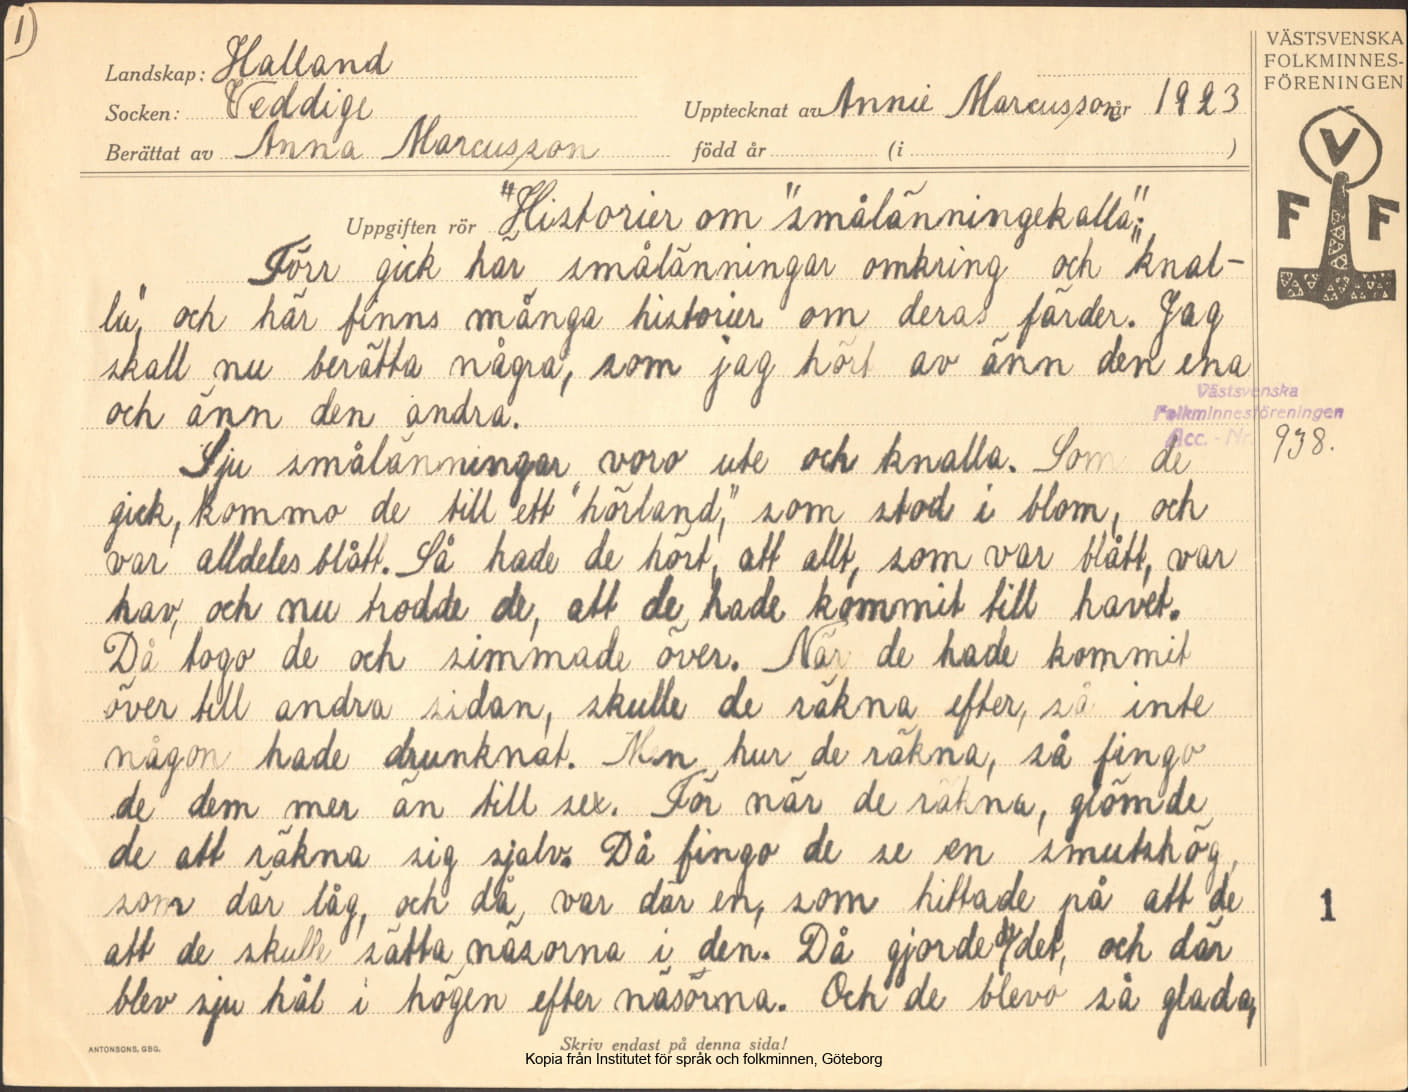 1)
Landskap: Halland
Socken: Veddige
Upptecknat av Annie Marcusson år 1923
Berättat av Anna Marcusson
född år (i )
VÄSTSVENSKA
FOLKMINNES-
FÖRENINGEN
V
F F
Uppgiften rör "Historier om "smålänningekalla".
Förr gick här smålänningar omkring och "knal-
la", och här finns många historier om deras färder. Jag
skall nu berätta några, som jag hört av änn den ena
och änn den andra.
Västsvenska
Folkminnesföreningen
Acc. - Nr. 938.
Sju smålänningar voro ute och knalla. Som de
gick, kommo de till ett "hörland," som stod i blom, och
var alldeles blått. Så hade de hört, att allt, som var blått, var
hav, och nu trodde de, att de hade kommit till havet.
Då togo de och simmade över. När de hade kommit
över till andra sidan, skulle de räkna efter, så inte
någon hade drunknat. Men hur de räkna, så fingo
de dem mer än till sex. För när de räkna, glömde
de att räkna sig sjalv. Då fingo de se en smutshög,
som där låg, och då, var där en, som hittade på att de
att de skulle sätta näsorna i den. Då gjorde de det, och där
blev sju hål i högen efter näsorna. Och de blevo så glada,
1
ANTONSONS, GBG.
Skriv endast på denna sida!
Kopia från Institutet för språk och folkminnen, Göteborg